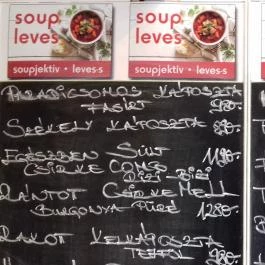 soup leves
soup leves
soupjektív • leves-s
soupjektív • leves-s
PARADICSOMOS KÁPOSZTA
FASÍRT 980.-
SZÉKELY KÁPOSZTA 890.-
EGÉSZBEN SÜLT 1190.-
CSIRKE COMB
RIZI-BIZI
RÁNTOTT CSIRKEMELL
BURGONYA PÜRÉ 1280.-
RAKOTT KELKÁPOSZTA